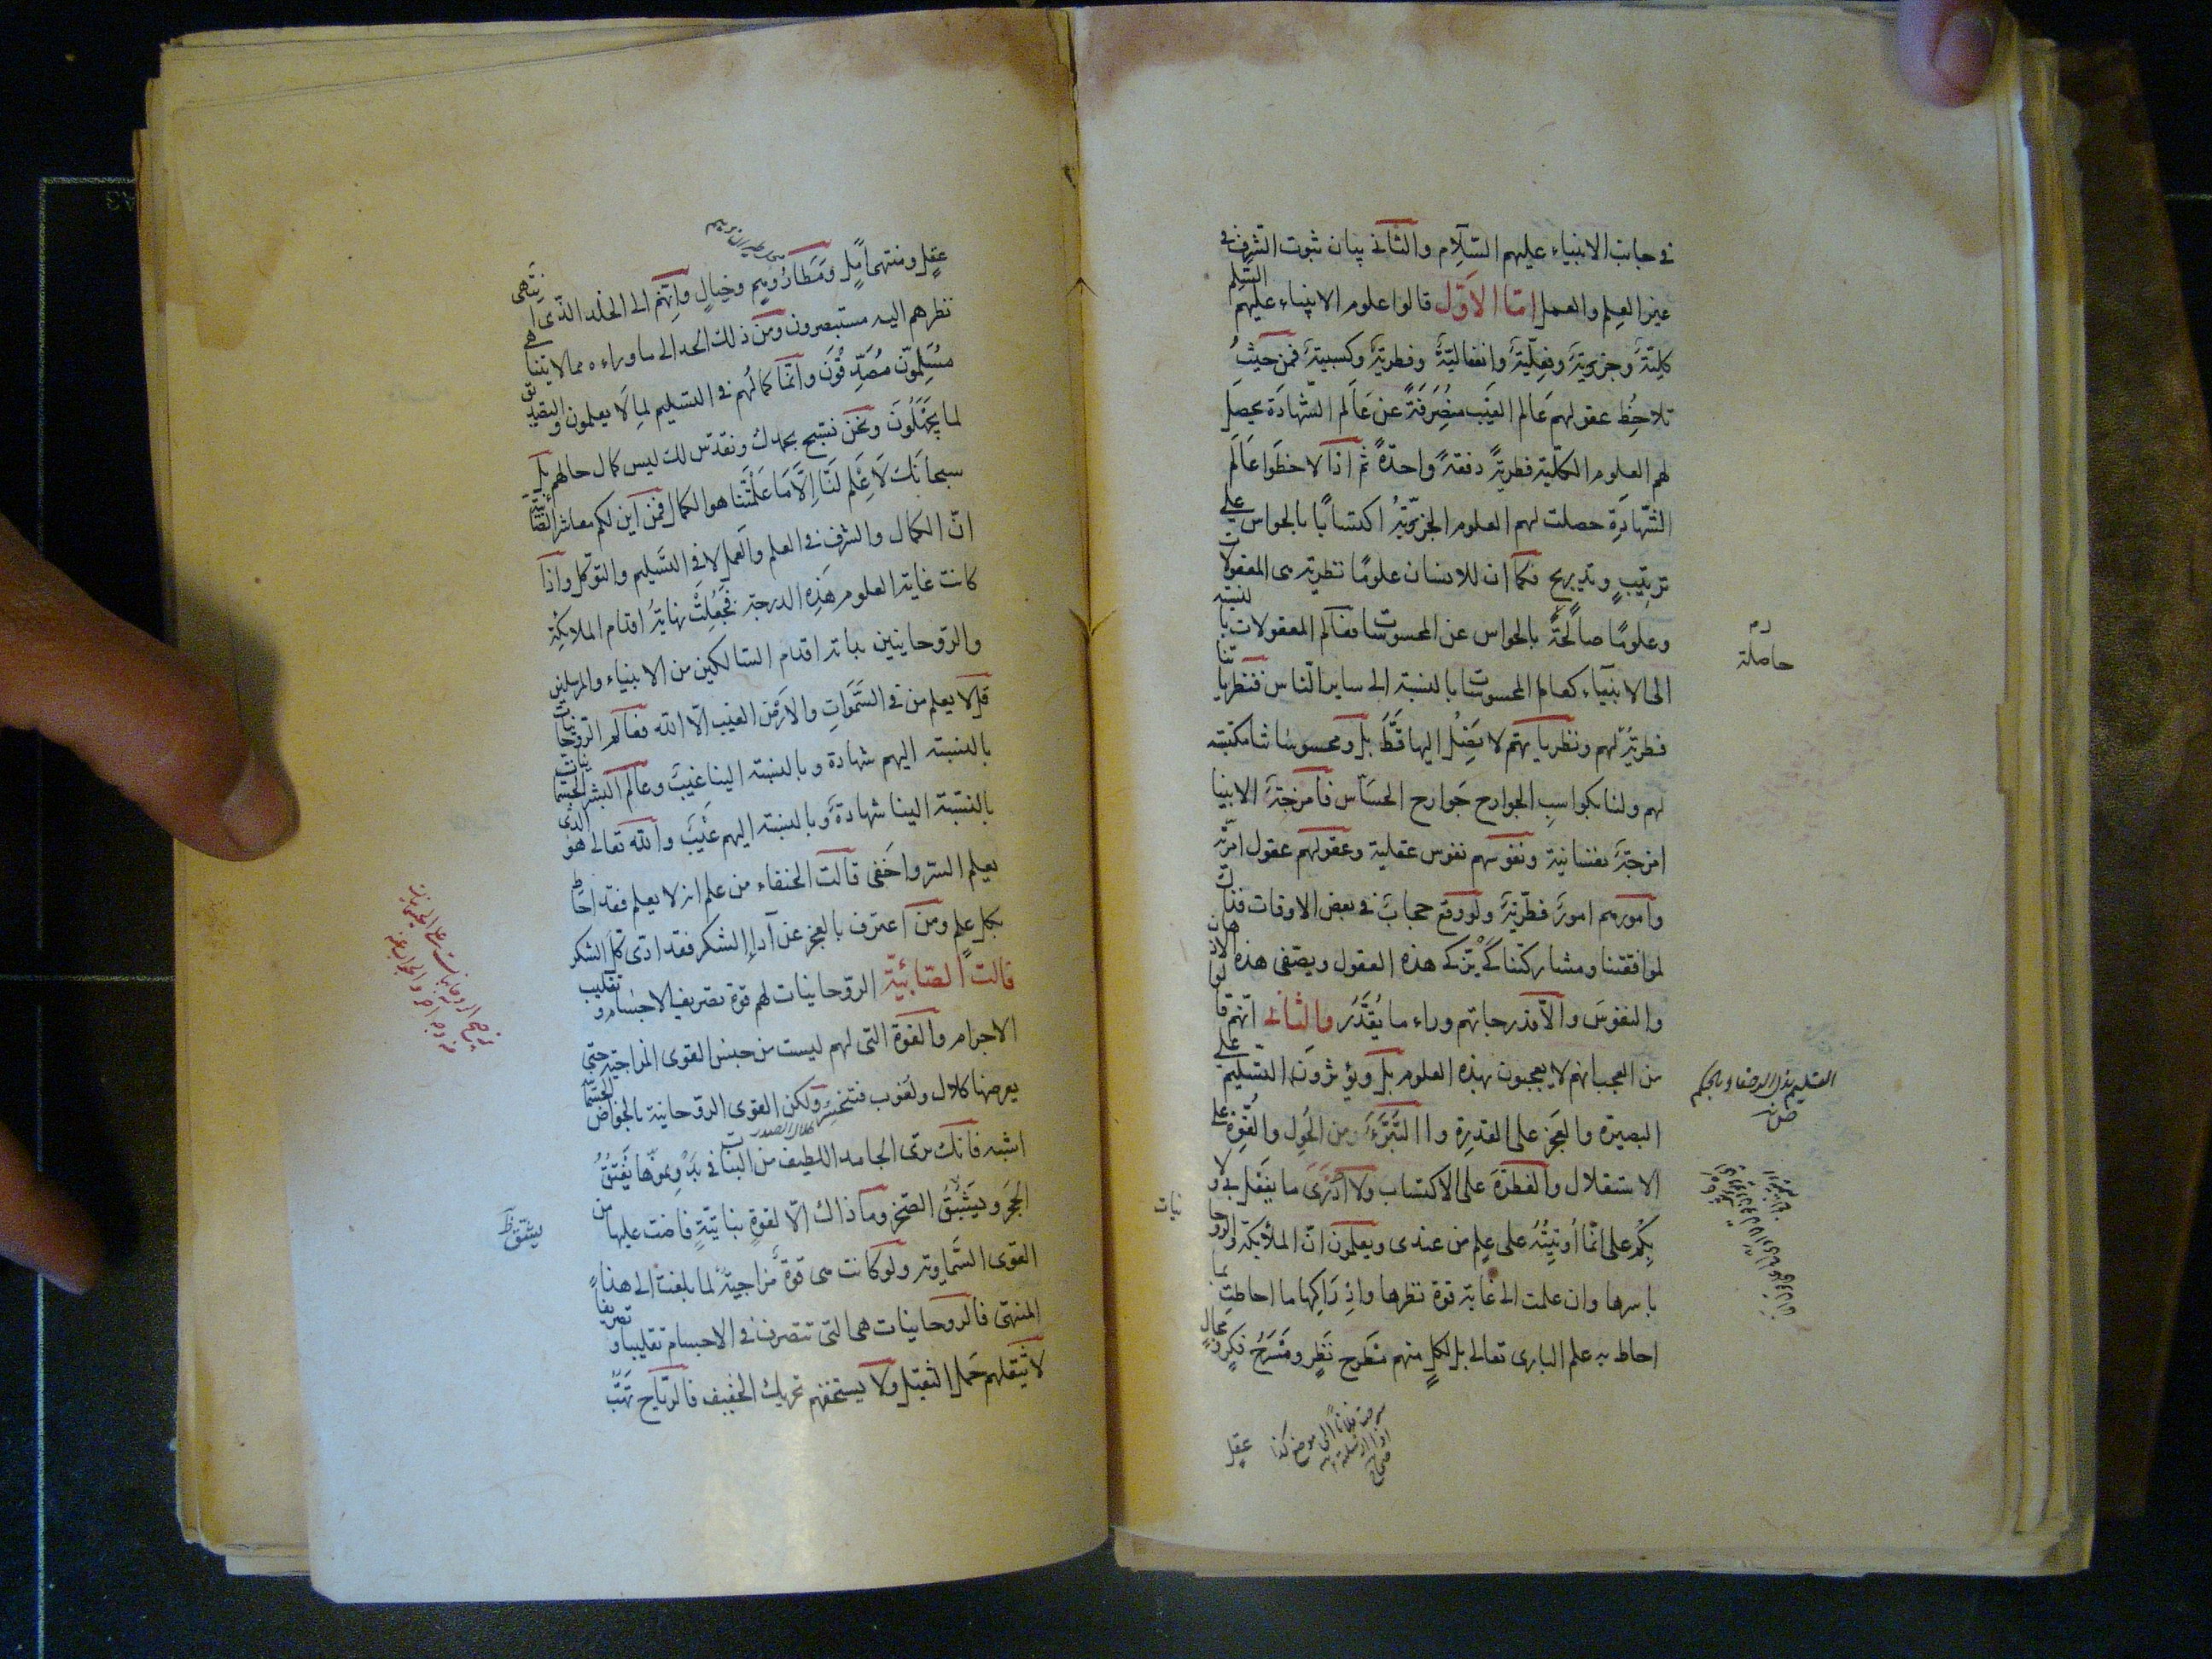 في جانب الانبياء عليهم السّلام والثاني بيان ثبوت الشرف في
غير العلم والعمل امّا الاوّل قالوا علوم الانبياء عليهم السّلم
كليّة وجزويّة وفعليّة وانفعاليّة وفطريّة وكسبيّة فمن حيث
تلاحظ عقولهم عالم الغيب منصرفة عن عالم الشهادة يحصل
لهم العلوم الكلّية فطرية دفعة واحدة ثم اذا لاحظوا عالم
الشهادة حصلت لهم العلوم الجزويّة اكتسابا بالحواس على
ترتيب وتدريج فكما ان للانسان علومًا نظرية هى المعقولات
وعلومًا صالحة بالحواس عن المحسوسات فعالم المعقولات بالنسبة
الى الانبياء كعالم المحسوسات بالنسبة الى ساير الناس فنظرياتنا
فطريّة لهم ونظرياتهم لا يصل اليها قط بل ومحسوساتنا مكتسبة
لهم ولنا بكواسب الجوارح جوارح الحسّاس فامزجة الانبيا
امزجة نفسانية ونفوسهم نفوس عقلية وعقولهم عقول امرية
وامورهم امور فطريّة ولو وقع حجاب في بعض الاوقات فذاك
لموافقتنا ومشاركتنا كي يتزكى هذه العقول ويصفى هذه الاذهان
والنفوس والا فدرجاتهم وراء ما يقدّر والثاني انهم قالوا
من العجب انهم لا يعجبون بهذه العلوم بل ويؤثرون التسليم على
البصيرة والعجز على القدرة والتبرّء من الحول والقوة على
الاستقلال والفطرة على الاكتساب ولا ادرى ما يفعل بي ولا
بكم على انّما اوتيته على علم من عندى ويعلمون انّ الملائكة والروحا
نيات
باسرها وان علمت الى غاية قوة نظرها وادراكها ما احاطت بما
احاط به علم البارى تعالى بل لكل منهم مطرح نظر ومسرح فكر ومجال
عقل
حاصلة
عقل ومنتها امل ومطار وهم وخيال وانهم الى الحد الذى انتهى
نظرهم اليه مستبصرون ومن ذلك الحد الى ما وراءه مما لا يتناهى
مسلّمون مصدّقون وانما كمالهم في التسليم لما لا يعلمون والتصديق
لما يجهلون ونحن نسبح بحمدك ونقدّس لك ليس كمال حالهم بل
سبحانك لا علم لنا الّا ما علّمتنا هو الكمال فمن اين لكم معاشر الصّابئة
انّ الكمال والشرف في العلم والعمل لا في التسليم والتوكل واذا
كانت غاية العلوم هذه الدرجة فجعلت نهاية اقدام الملائكة
والروحانيين بداية اقدام السالكين من الانبياء والمرسلين
قل لا يعلم من في السموات والارض الغيب الا الله فعالم الروحانيات
بالنسبة اليهم شهادة وبالنسبة الينا غيب وعالم البشر الجسمانيات
بالنسبة الينا شهادة وبالنسبة اليهم غيب والله تعالى هو الذى
يعلم السر واخفى قالت الحنفاء من علم انه لا يعلم فقد احاط
بكل علم ومن اعترف بالعجز عن آداء الشكر فقد ادّى كل الشكر
قالت الصابئيّة الروحانيات لهم قوة تصريف الاجسام وتقليب
الاجرام والقوة التى لهم ليست من جنس القوى المزاجية حتى
يعرضها كلال ولغوب فتنحسر ولكن القوى الروحانية بالخواص الجسمانية
اشبه فانك ترى الجامد اللطيف من النبات في بدو نموّها يفتق
الحجر ويشقق الصخر وما ذاك الّا لقوة نباتيّة فاضت عليها من
القوى السماوية ولو كانت هى قوة مزاجية لما بلغت الى هذا
المنتهى فالروحانيات هى التى تتصرف في الاجسام تقليبا وتصريفا
لا يثقلهم حمل الثقيل ولا يستخفهم تحريك الخفيف فالرياح تهبّ